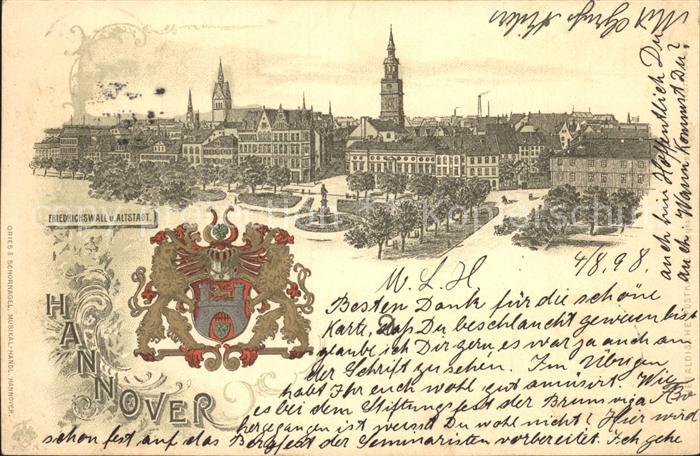 FRIEDRICHSWALL u. ALTSTADT.
HANNOVER
GRIES & SCHORNAGEL, MUSIKAL.-HANDL. HANNOVER.
4/8. 98.
M. L. H
Besten Dank für die schöne
Karte, daß Du beschlaucht gewesen bist
glaube ich Dir gern es war ja auch an
der Schrift zu sehen. Im Übrigen
habt Ihr euch wohl gut amüsirt. Wie
es bei dem Stiftungsfest der Brunsviga
hergegangen ist weisst Du wohl nicht! Hier wird
schon fest auf das Bergfest der Seminaristen vorbereitet. Ich gehe
auch hin Hoffentlich Du
auch. Wann kommst Du?
Mit Gruß